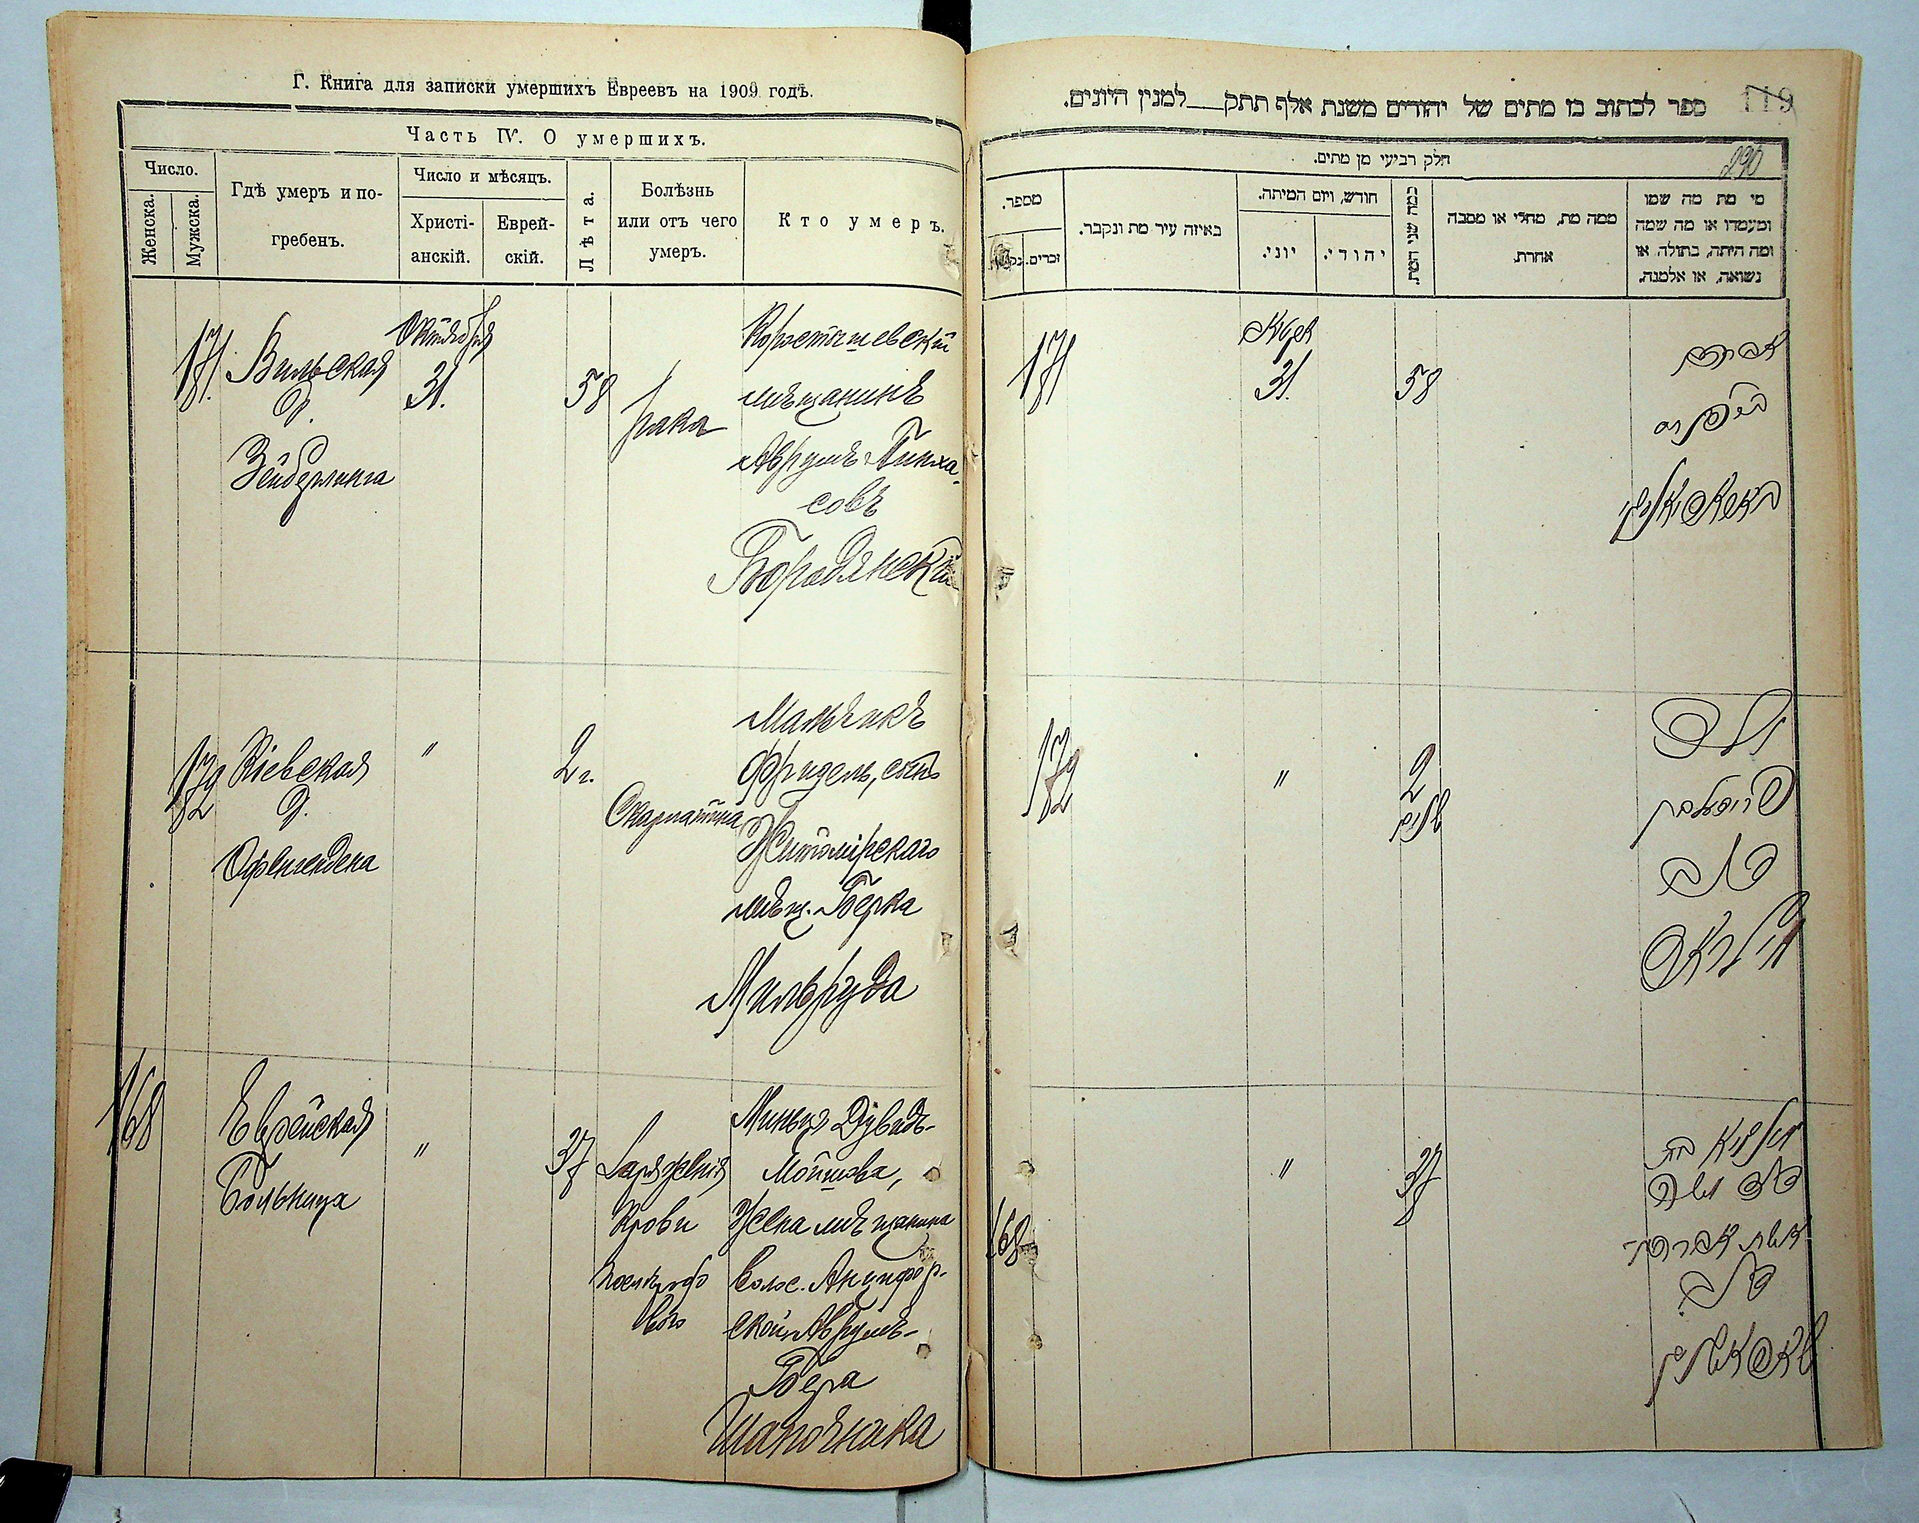 Г. Книга для записки умершихъ Евреевъ на 1909 годъ.
Часть IV. О умершихъ.
Число.
Женска.
Мужска.
Гдѣ умеръ и по-
гребенъ.
Число и мѣсяцъ.
Христі-
анскій.
Еврей-
скій.
Лѣта.
Болѣзнь
или отъ чего
умеръ.
Кто умеръ.
171.
Вильская
д.
Зейберлинга
Октября
31.
58
Рака
Коростышевскій
мѣщанинъ
Аврумъ Пинха-
совъ
Бородянскій
172
Кіевская
д.
Офенгендена
"
2 г.
Скарлатина
Мальчикъ
Фридель, сынъ
Житомірскаго
мѣщ. Берка
Мильруда
168
Еврейская
Больница
"
37
Заражения
крови
Минця Дувидъ-
Мойшова,
Жена мѣщанина
Волос.
ской Аврумъ-
Бера
Шапочника
ספר לכתוב בו מתים של יהודים משנת אלף תתק___למנין היונים.
119
290
חלק רביעי מן מתים.
מספר.
נקבות.
זכרים.
באיזה עיר מת ונקבר.
חודש, ויום המיתה.
יוני.
יהודי.
כמה שני המת.
ממה מת, מחלי או מסבה
אחרת.
מי מת מה שמו
ומעמדו או מה שמה
ומה היתה, בתולה או
נשואה, או אלמנה.
171
31.
58
אברהם
172
"
2
ילד
168
"
37